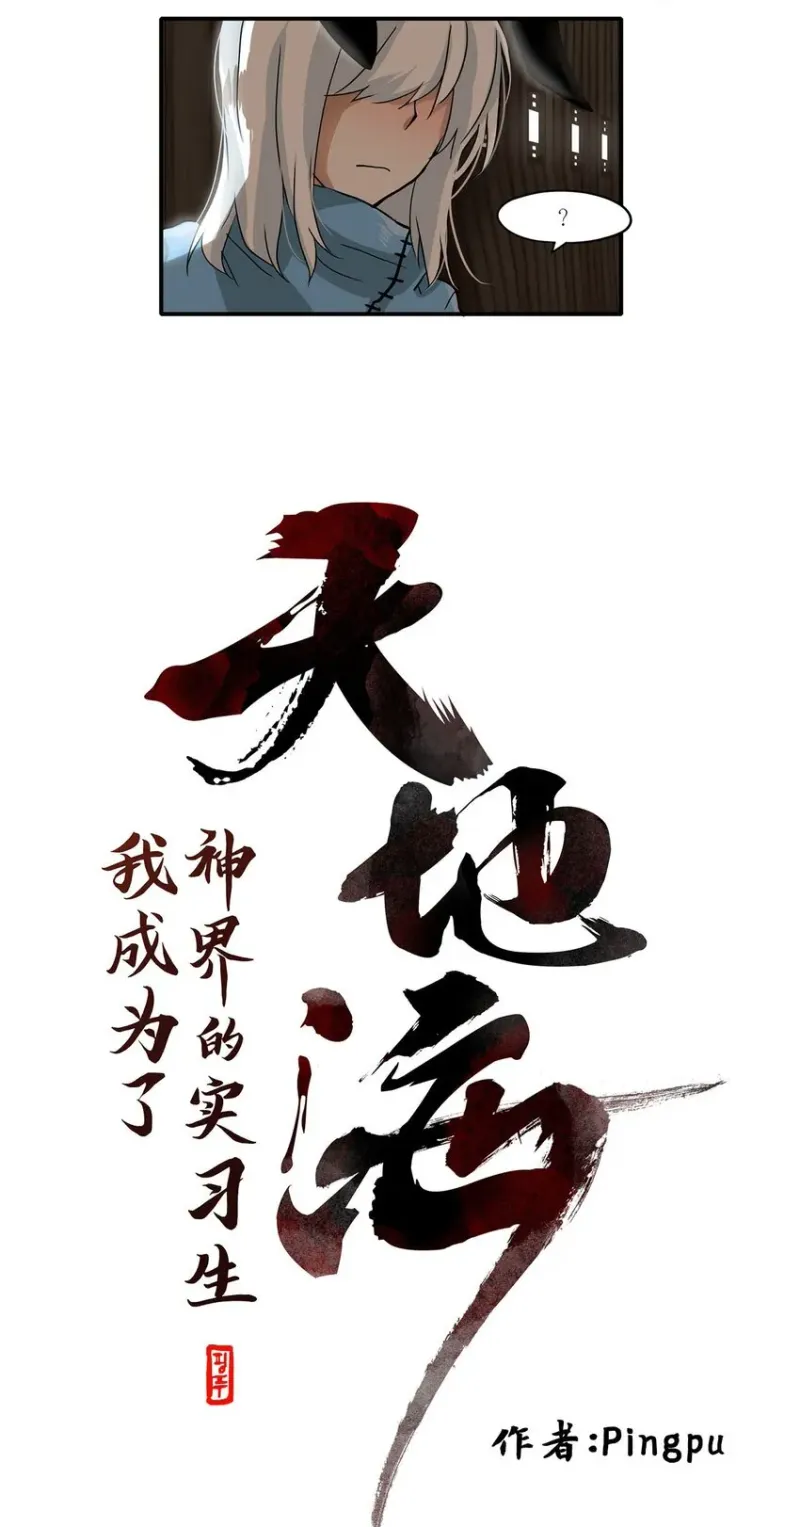 ?
天地海
我成为了
神界的实习生
핑푸
作者:Pingpu